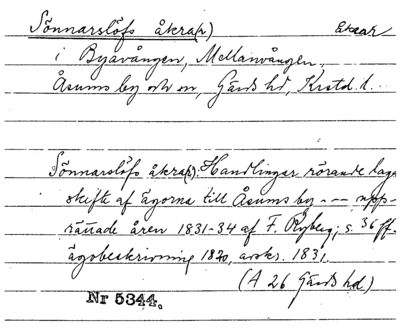 Sönnarslöfs åkra(r) Åkrar
i Byavången, Mellanvången,
Åsums by och sn, Gärds hd, Krstd. l.
Sönnarslöfs åkra(r): Handlingar rörande laga
skifte af ägorna till Åsums by - - - upp-
rättade åren 1831-34 af F. Ryberg; s. 36 ff.
ägobeskrivning 1820, avskr. 1831.
(A 26 Gärds hd)
Nr 5344.